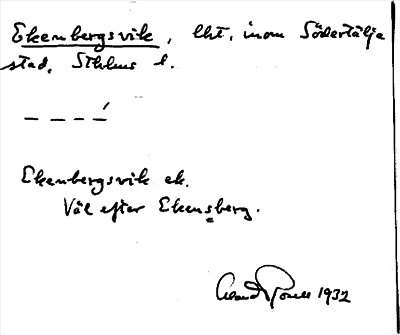 Ekenbergsvik, lht, inom Södertälje
stad, Sthlms l.
– – – –́
Ekenbergsvik ek.
Väl efter Ekensberg.
1932